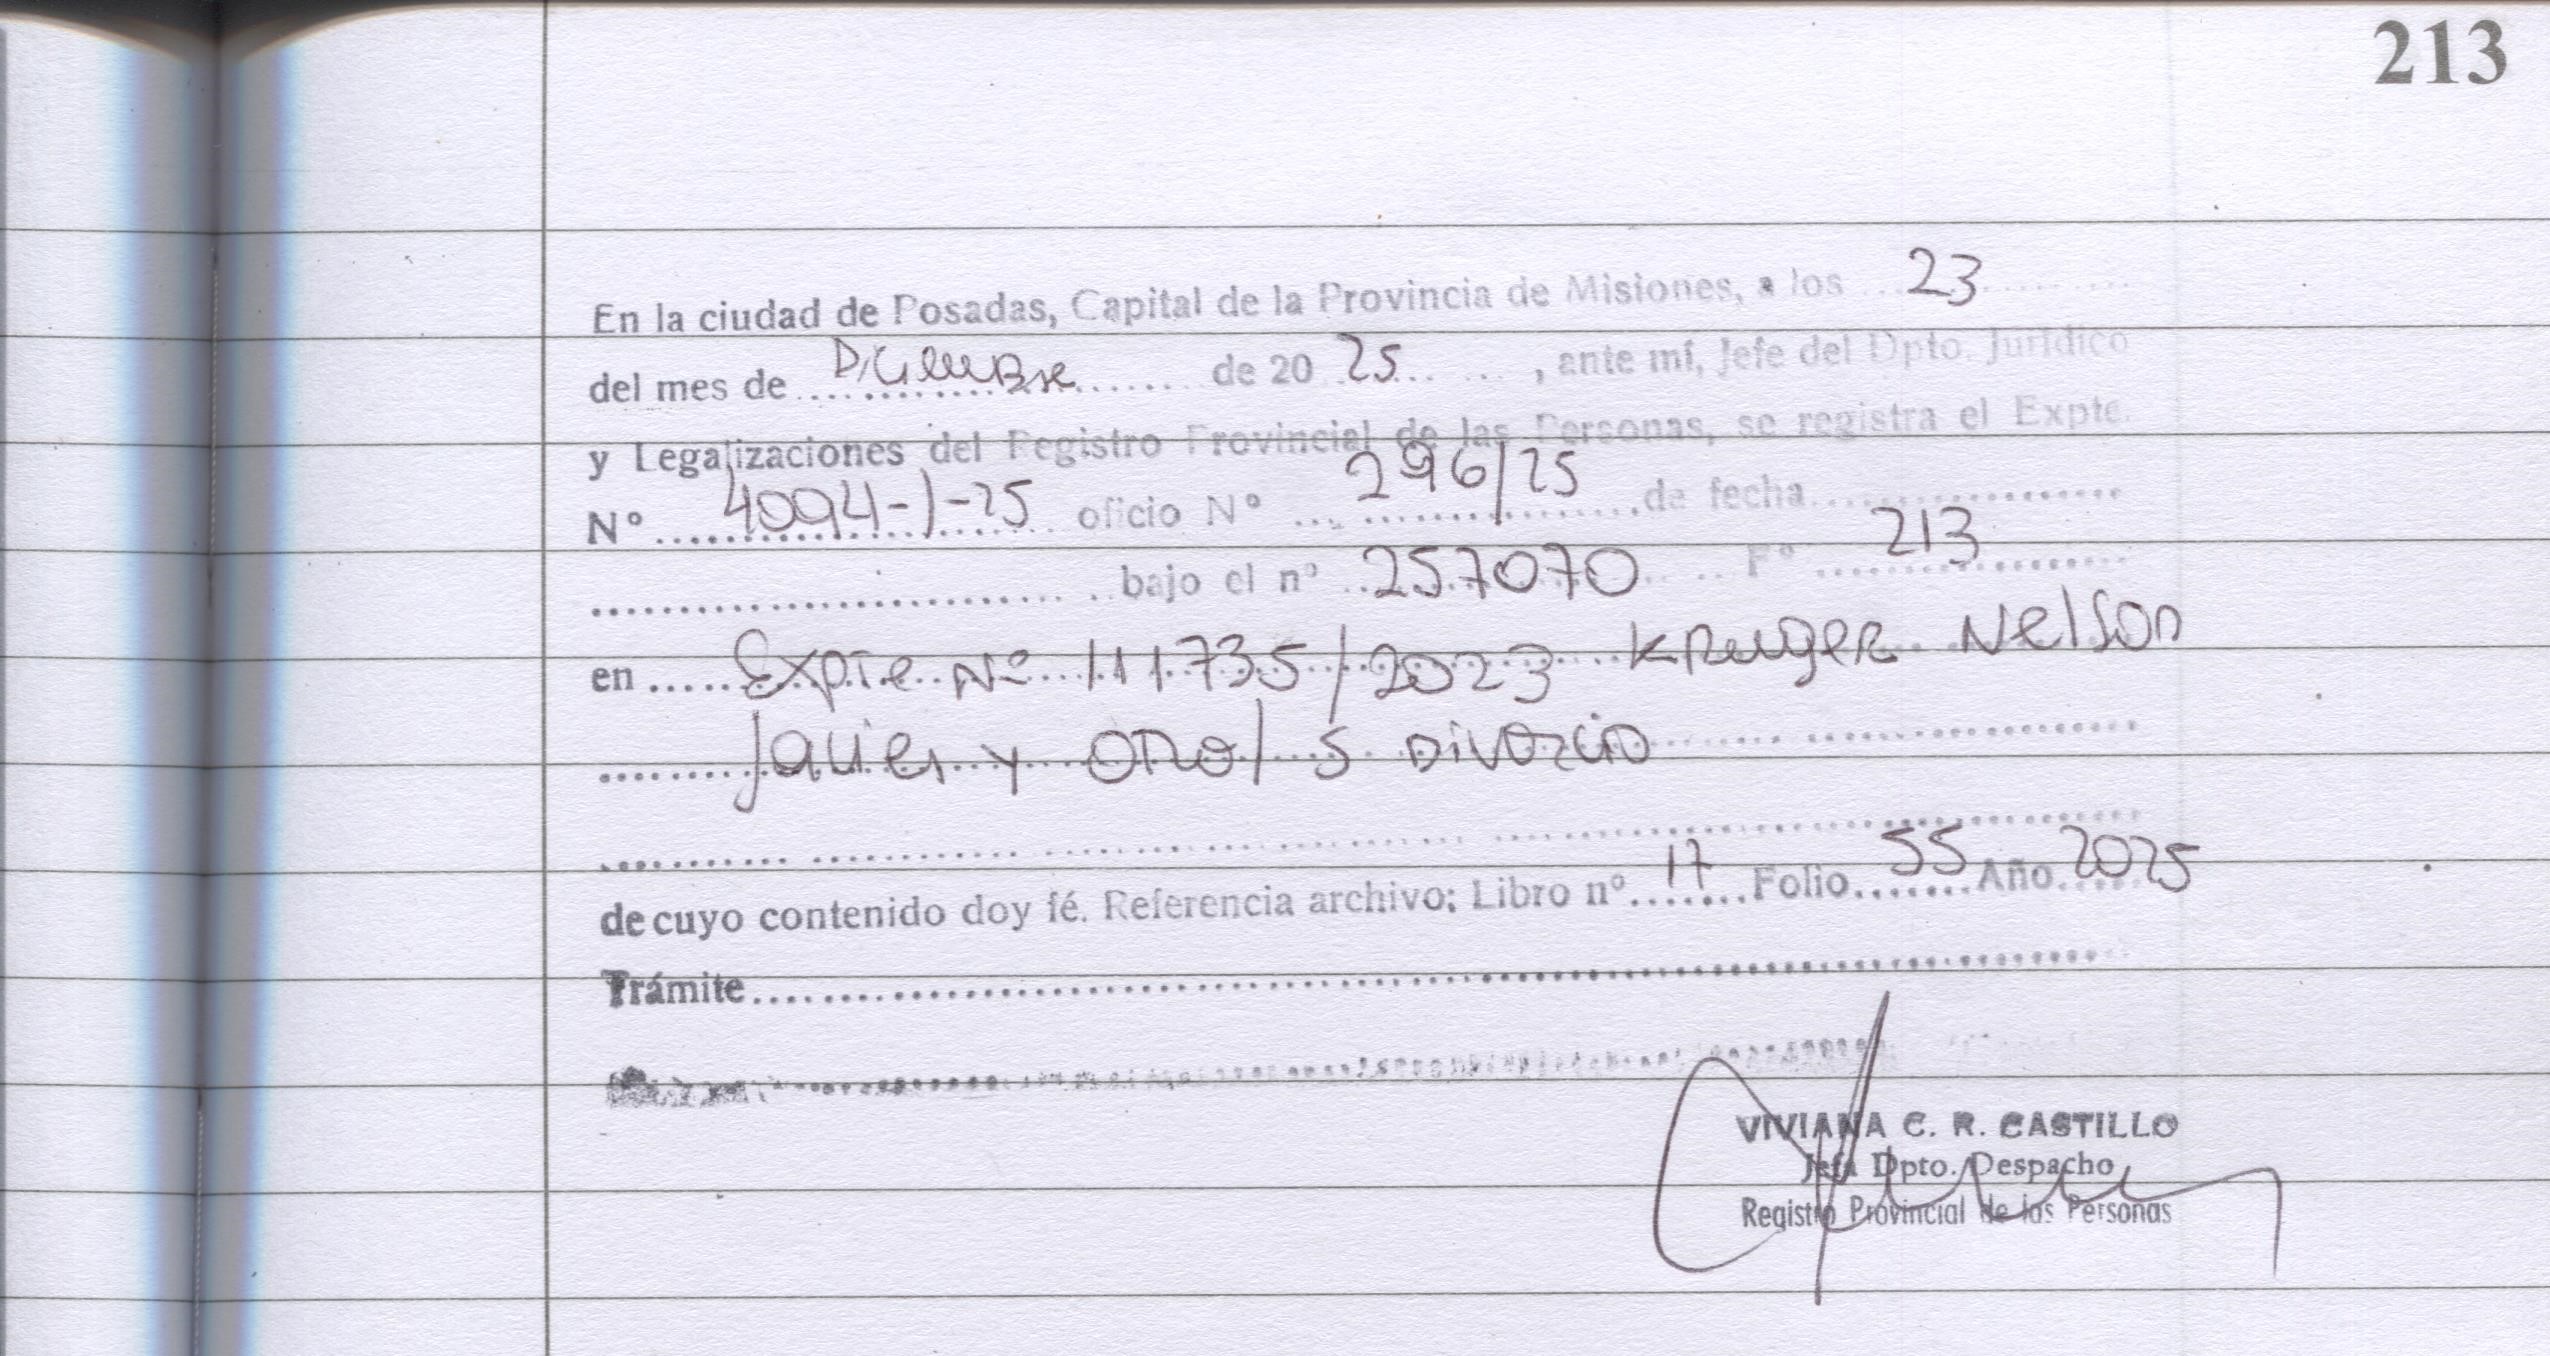 213
En la ciudad de Posadas, Capital de la Provincia de Misiones, a los 23
del mes de Diciembre de 20 25 , ante mí, Jefe del Dpto. Jurídico
y Legalizaciones del Registro Provincial de las Personas, se registra el Expte.
Nº 4094-1-25 oficio Nº 296/25 de fecha
bajo el nº 257070 Fº 213
en Expte Nº 111735/2023 Kruger Nelson
Javier y Otro/ S Divorcio
de cuyo contenido doy fé. Referencia archivo: Libro nº 17 Folio 55 Año 2025
Trámite
VIVIANA C. R. CASTILLO
Jefa Dpto. Despacho
Registro Provincial de las Personas